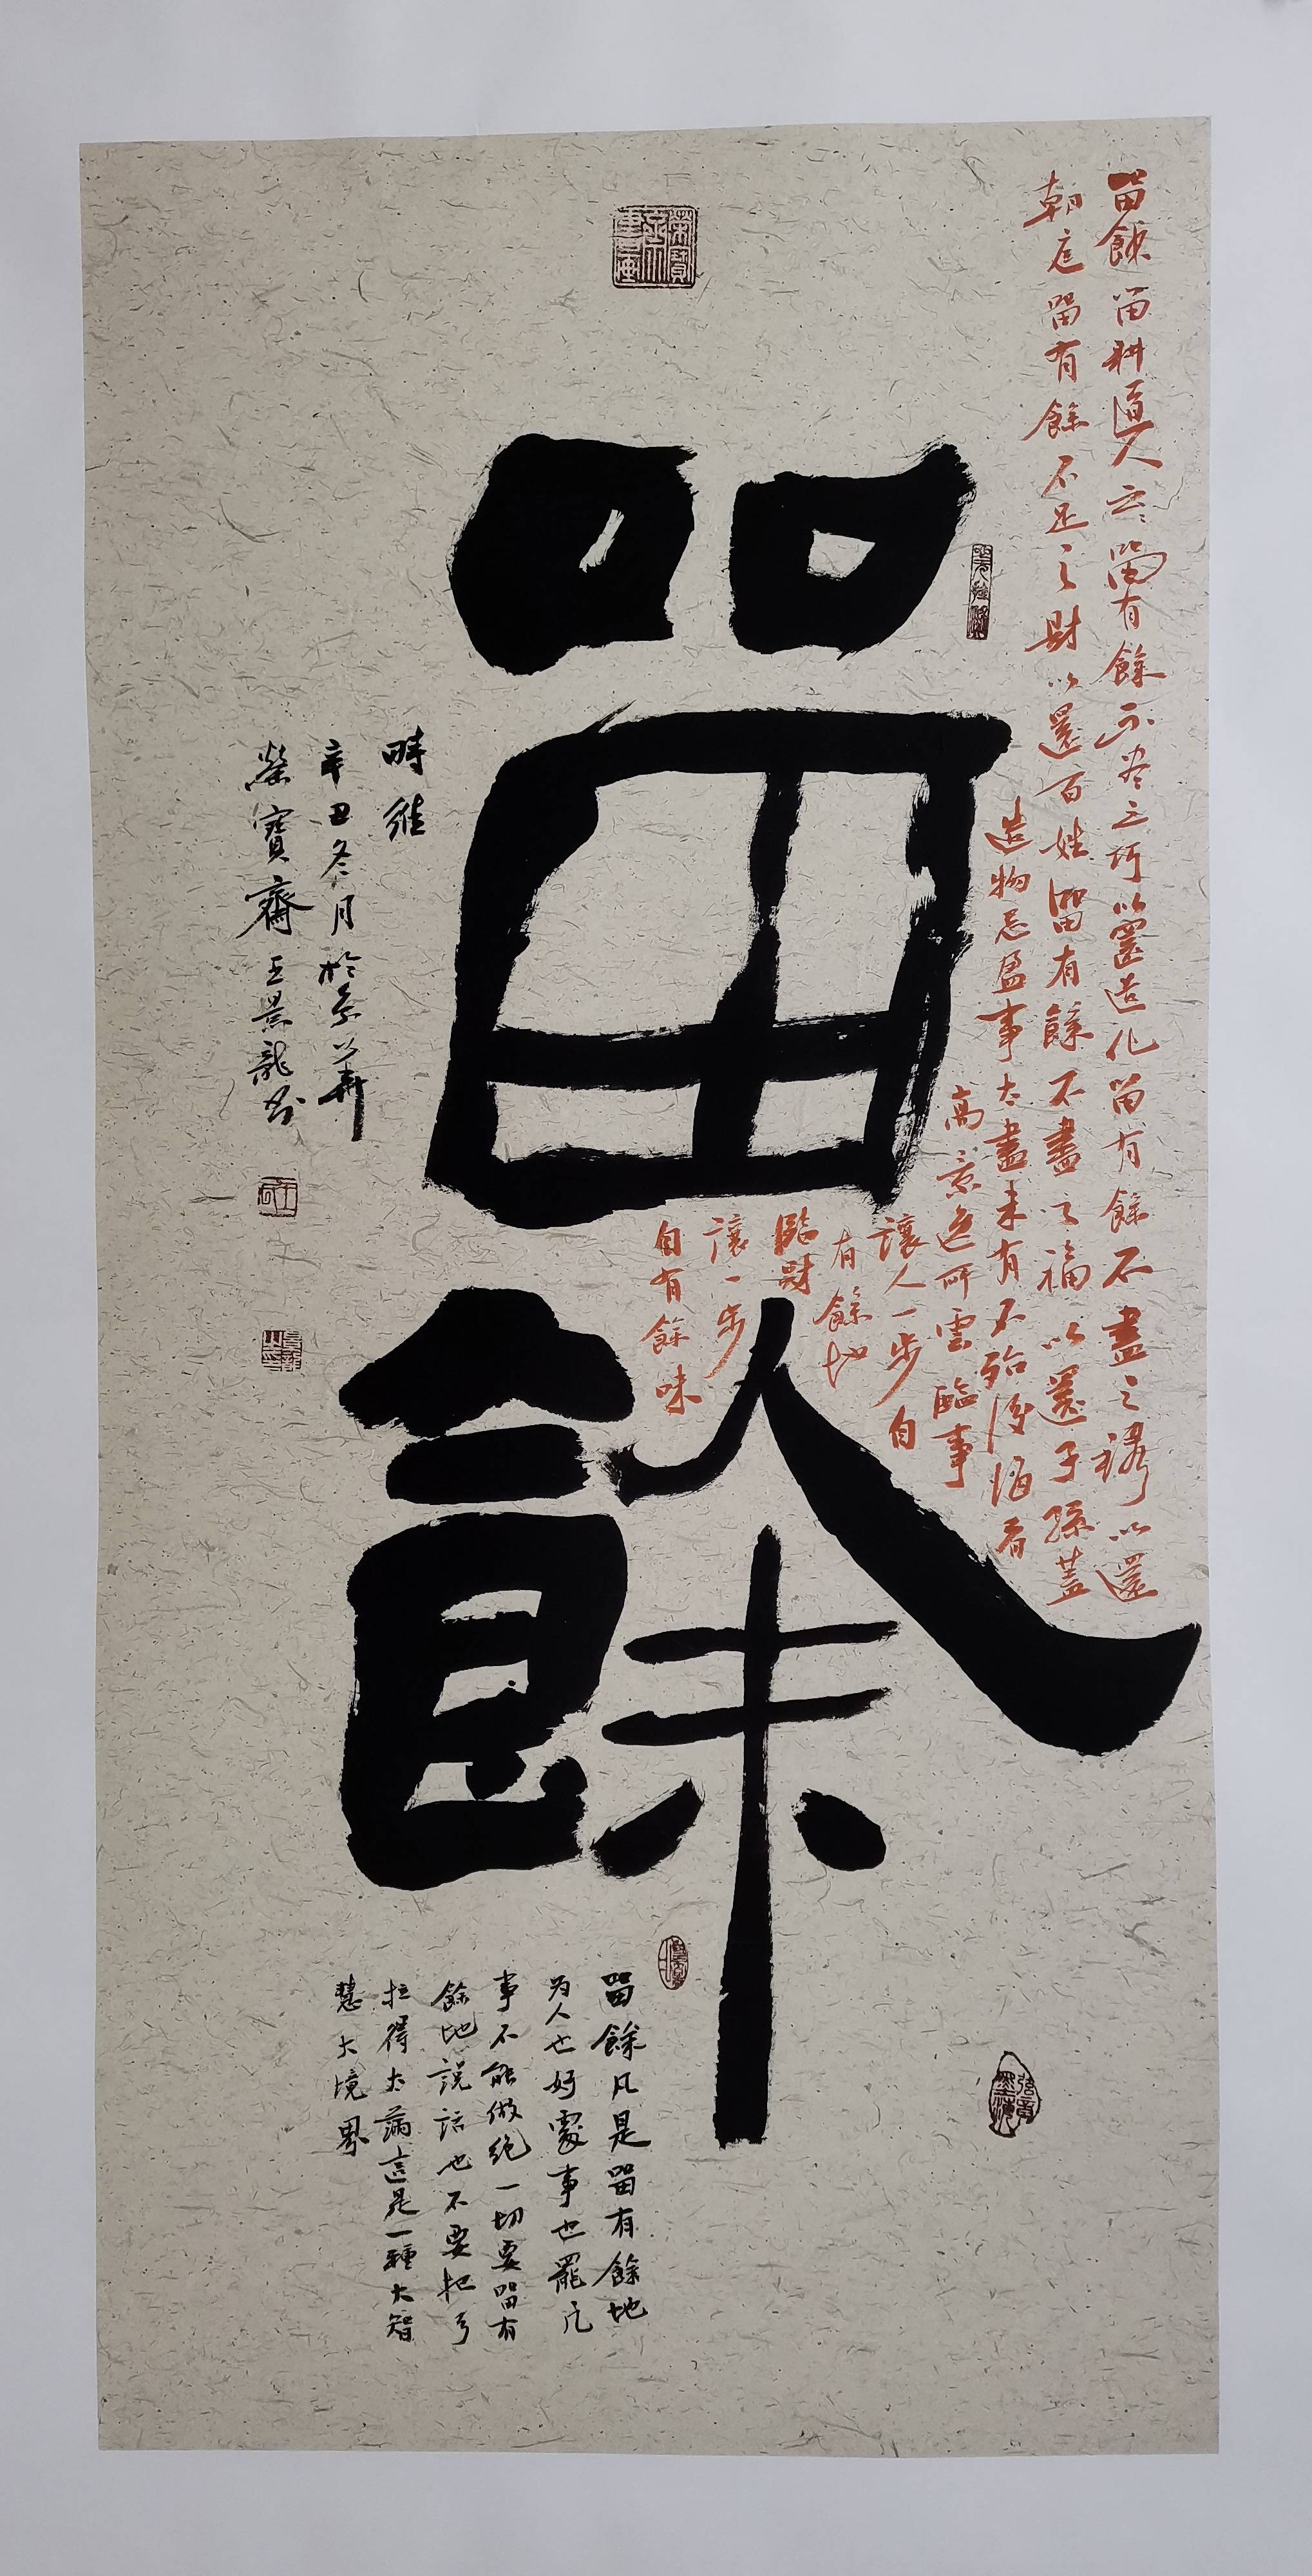 畱餘
畱餘畱耕道人云畱有餘不盡之巧以還造化畱有餘不盡之祿以還
朝庭畱有餘不足之財以還百姓畱有餘不盡之福以還子孫蓋
造物忌盈事太盡未有不殆後悔者
高景逸所雲臨事
讓人一步自
有餘地
臨財
讓一步
自有餘味
時維
辛丑冬月於京華
榮寶齋王景龍書
畱餘凡是畱有餘地
为人也好處事也罷凡
事不能做绝一切要畱有
餘地說話也不要把弓
拉得太满這是一種大智
慧大境界